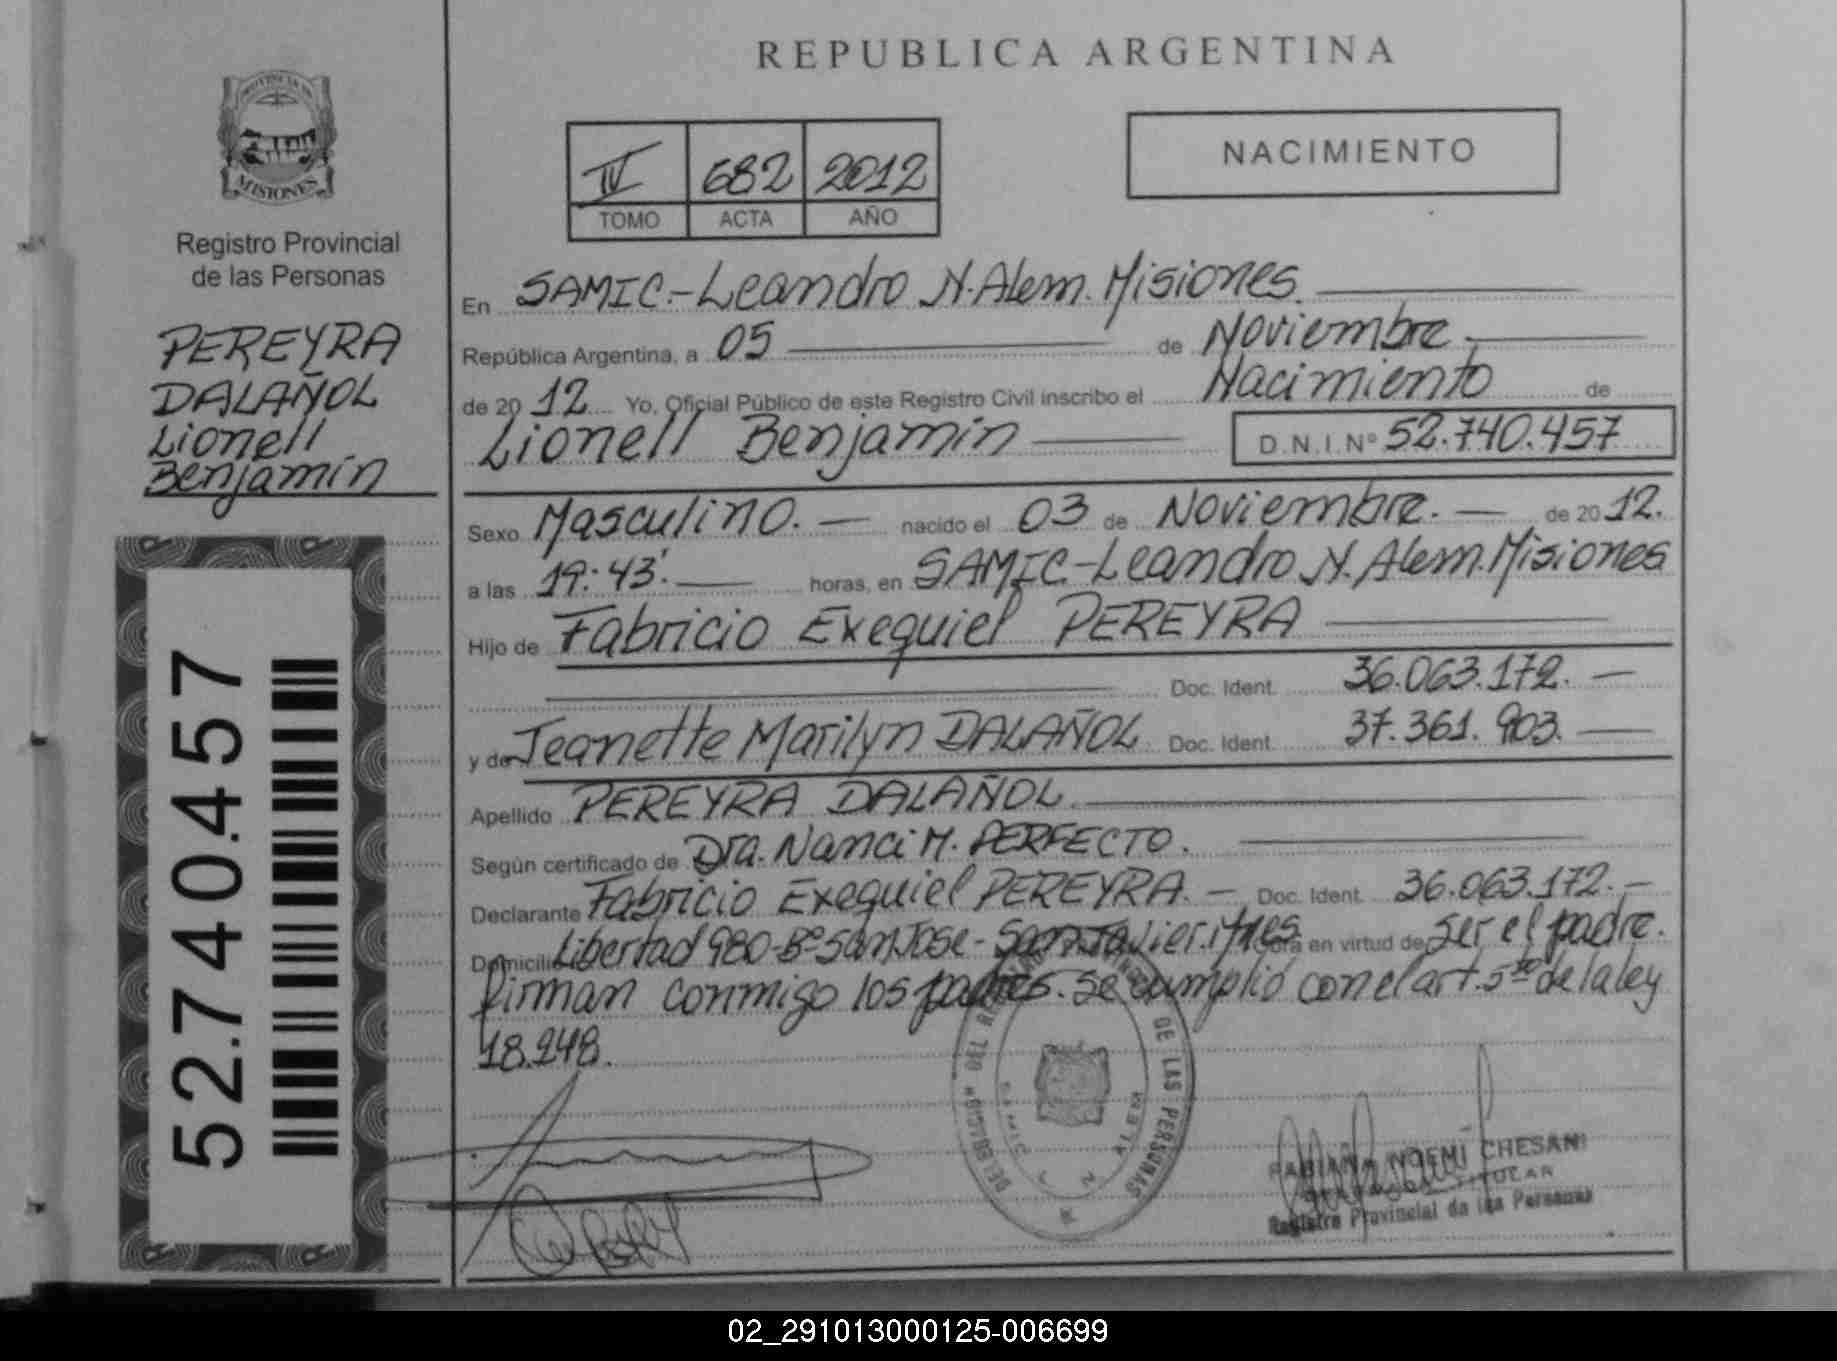 REPUBLICA ARGENTINA
PROVINCIA DE
MISIONES
Registro Provincial
de las Personas
PEREYRA
DALAÑOL
Lionell
Benjamín
52.740.457
IV 682 2012
TOMO ACTA AÑO
NACIMIENTO
En SAMIC.-Leandro N. Alem. Misiones.
República Argentina, a 05 de Noviembre.
de 2012 Yo, Oficial Público de este Registro Civil inscribo el Nacimiento de
Lionell Benjamín D.N.I.Nº 52.740.457
Sexo Masculino. nacido el 03 de Noviembre. de 2012.
a las 19:43'. horas, en SAMIC-Leandro N. Alem. Misiones
Hijo de Fabricio Exequiel PEREYRA
Doc. Ident. 36.063.172.
y de Jeanette Marilyn DALAÑOL Doc. Ident. 37.361.903.
Apellido PEREYRA DALAÑOL.
Según certificado de Dra. Nanci M. PERFECTO.
Declarante Fabricio Exequiel PEREYRA. Doc. Ident. 36.063.172.
Domicilio Libertad 980-Bº San José- San Javier. Mnes. en virtud de ser el padre.
firman conmigo los padres. Se cumplió con el art. 5to de la ley
18.248.
DELEGACIÓN DEL REGISTRO PROVINCIAL DE LAS PERSONAS
SAMIC L. N. ALEM
FABIANA NOEMÍ CHESANI
TITULAR
Registro Provincial de las Personas
02_291013000125-006699